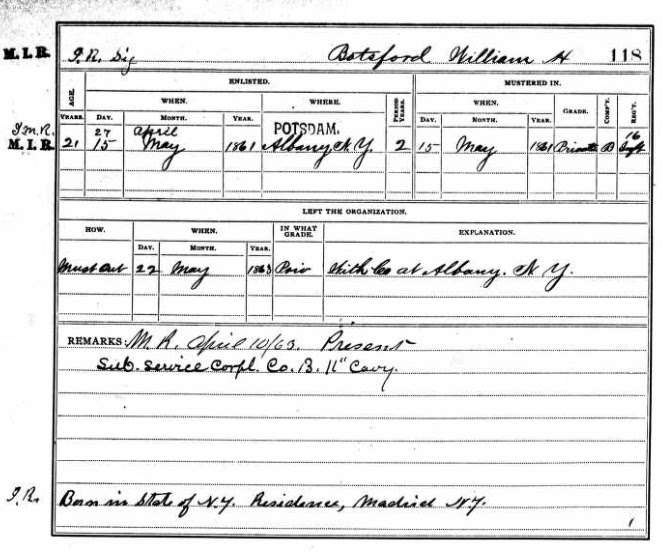 M.I.R. I.R. Sig Botsford William H 118
ENLISTED. MUSTERED IN.
AGE. WHEN. WHERE. PERIOD WHEN. GRADE. COMP'Y. REG'T.
YEARS. DAY. MONTH. YEAR. YEARS. DAY. MONTH. YEAR.
27 April POTSDAM. 16
M.I.R. 21 15 May 1861 Albany N.Y. 2 15 May 1861 Private B Inft
LEFT THE ORGANIZATION.
HOW. WHEN. IN WHAT GRADE. EXPLANATION.
DAY. MONTH. YEAR.
Must Out 22 May 1863 Priv With Co at Albany. N.Y.
REMARKS: M.R. April 10/63. Present
Sub. service Corpl. Co. B. 11" Cavy.
I.R. Born in State of N.Y. Residence, Madrid N.Y.
1